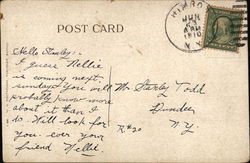 POST CARD
HIMROD
JUN
1910
N.Y.
Hello Stanley:-
I guess Nellie
is coming next
sunday. You will
probably know more
about it than I
do. Will look for
you. ever your
friend Nellie
Mr Stanley Todd
Dundee
R#20 N.Y.